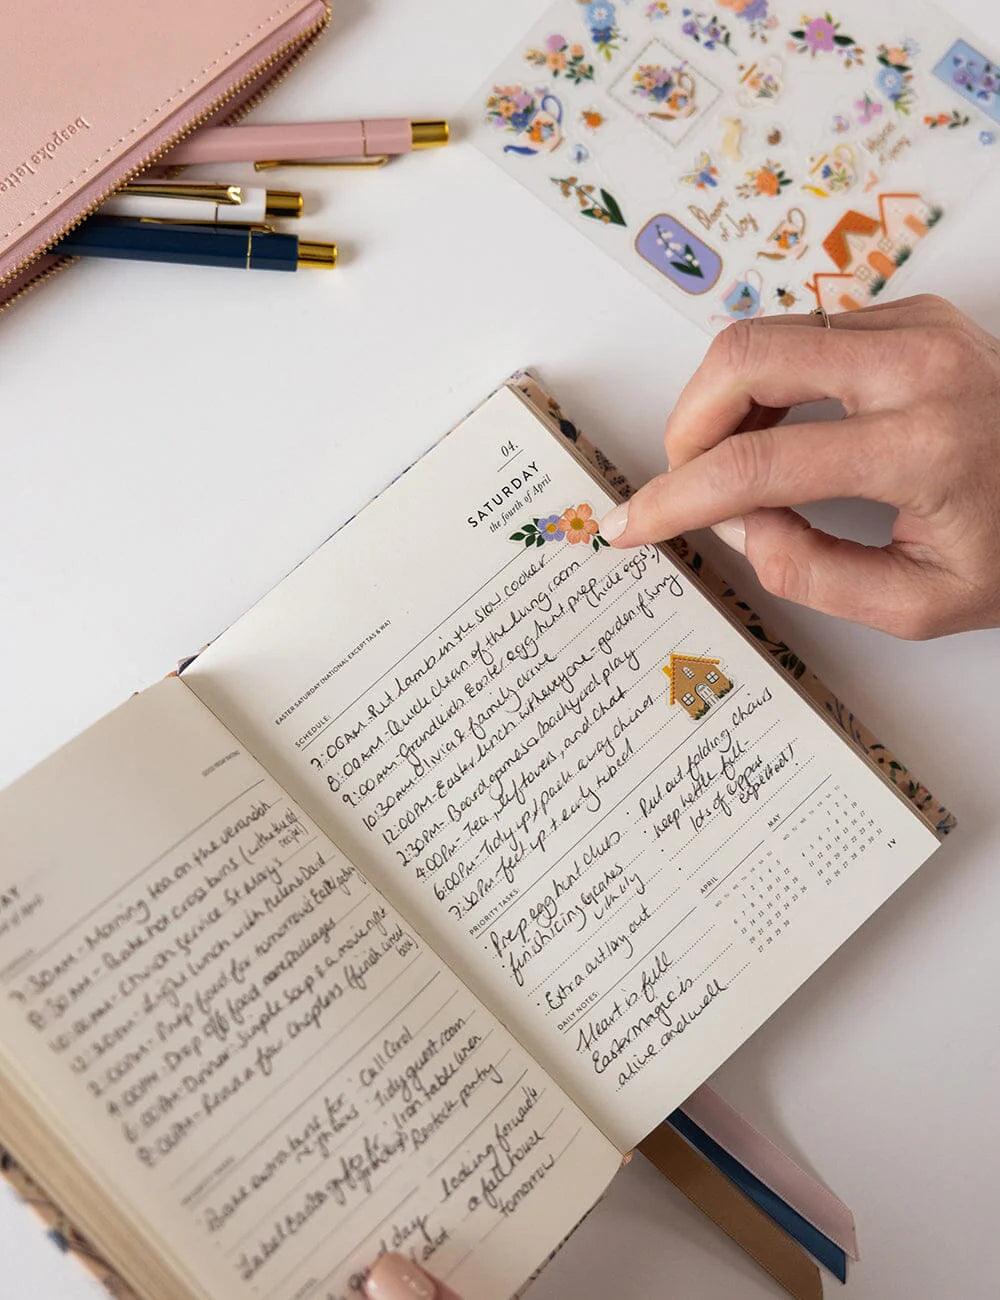 bespoke lette
Bloom
of Joy
04.
SATURDAY
the fourth of April
EASTER SATURDAY (NATIONAL EXCEPT TAS & WA)
SCHEDULE:
7:00AM - Put lamb in the slow cooker
8:00AM - Quick clean of the living room
9:00AM - Grandkids Easter egg hunt prep (hide eggs!)
10:30AM Olivia & family arrive
12:00PM - Easter lunch with everyone - garden if sunny
2:30PM - Board games & backyard play
4:00PM - Tea, leftovers, and chat
6:00PM - Tidy up + pack away chinas
7:30PM - feet up + early to bed!
PRIORITY TASKS:
· Prep egg hunt clues
· finish icing cupcakes
with lily
· Extra art lay out
· Put out folding chairs
· keep kettle full -
lots of cuppas
expected!
DAILY NOTES:
Heart is full
Easter Magic is
alive and well
APRIL
MAY
IV
AY
7:30AM - Morning tea on the verandah
8:30AM - Bake hot cross buns (with the big
recipe)
10:00AM - Church service St Mary's
12:30PM - Light lunch with Helen & David
2:00PM - Prep food for tomorrow's
4:00PM - Drop off food care packages
6:00PM - Dinner - Simple soup & a movie night
8:00PM - Read a few chapters (finish library
book)
· Call Carol
· Tidy guest room
· Iron table linen
· Restock pantry
Label Easter gifts for
neighbours
day
looking forward to
a full house
tomorrow